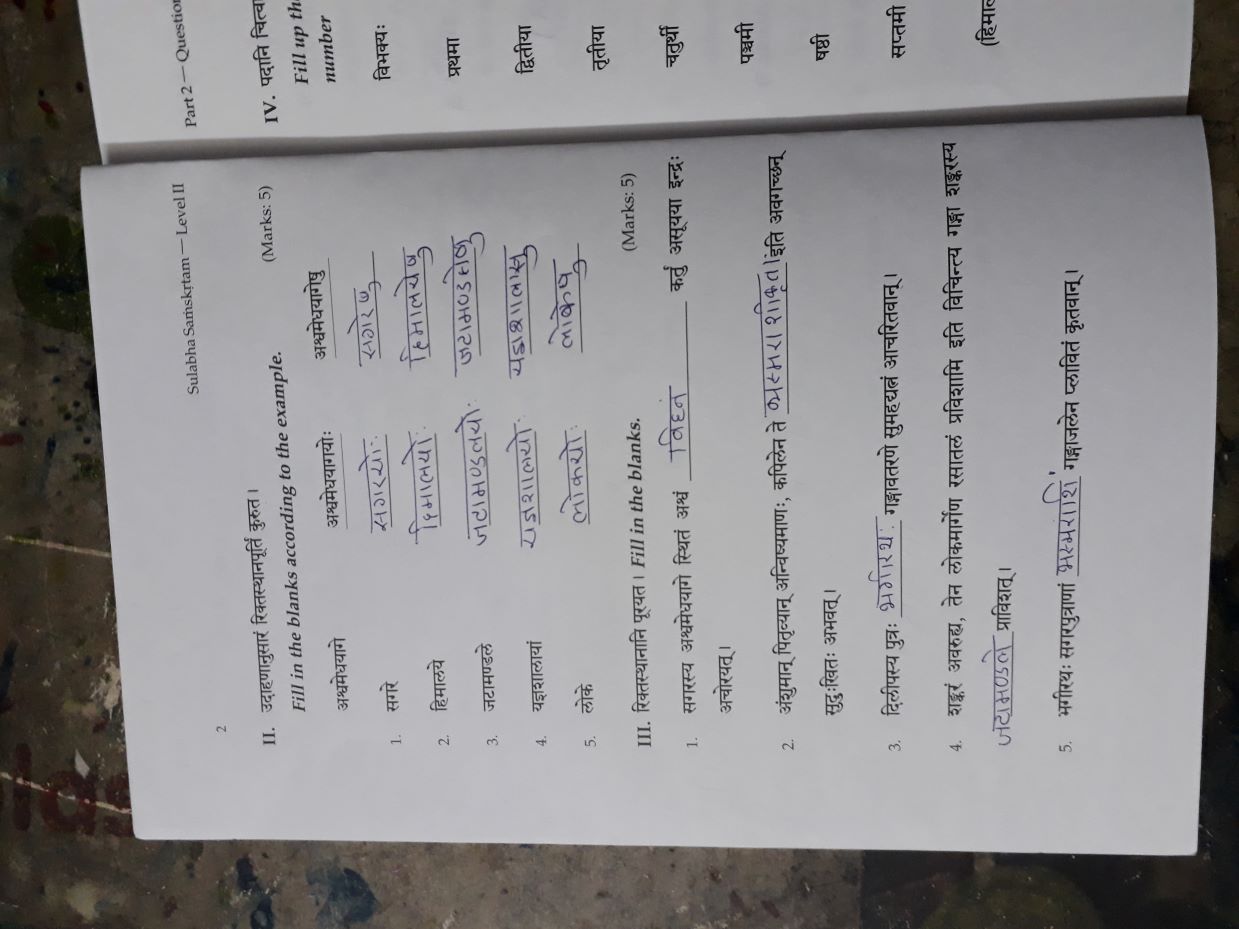 Sulabha Saṁskṛtam — Level II
2
II. उदाहणानुसारं रिक्तस्थानपूर्तिं कुरुत।
Fill in the blanks according to the example. (Marks: 5)
अश्वमेधयागे अश्वमेधयागयोः अश्वमेधयागेषु
1. सगरे सगरयोः सगरेषु
2. हिमालये हिमालयोः हिमालयेषु
3. जटामण्डले जटामण्डलयोः जटामण्डलेषु
4. यज्ञशालायां यज्ञशालयोः यज्ञशालासु
5. लोके लोकयोः लोकेषु
III. रिक्तस्थानानि पूरयत। Fill in the blanks. (Marks: 5)
1. सगरस्य अश्वमेधयागे स्थितं अश्वं विघ्नं कर्तुं असूयया इन्द्रः
अचोरयत्।
2. अंशुमान् पितृव्यान् अन्विष्यमाणः, कपिलेन ते भस्मराशीकृताः इति अवगच्छन्
सुदुःखितः अभवत्।
3. दिलीपस्य पुत्रः भगीरथः गङ्गावतरणे सुमहद्यत्नं आचरितवान्।
4. शङ्करं अवरुह्य, तेन लोकमार्गेण रसातलं प्रविशामि इति विचिन्त्य गङ्गा शङ्करस्य
जटामण्डले प्राविशत्।
5. भगीरथः सगरपुत्राणां भस्मराशिं गङ्गाजलेन प्लावितं कृतवान्।
Part 2 — Question
IV. पदानि चित्वा
Fill up the
number
विभक्यः
प्रथमा
द्वितीया
तृतीया
चतुर्थी
पञ्चमी
षष्ठी
सप्तमी